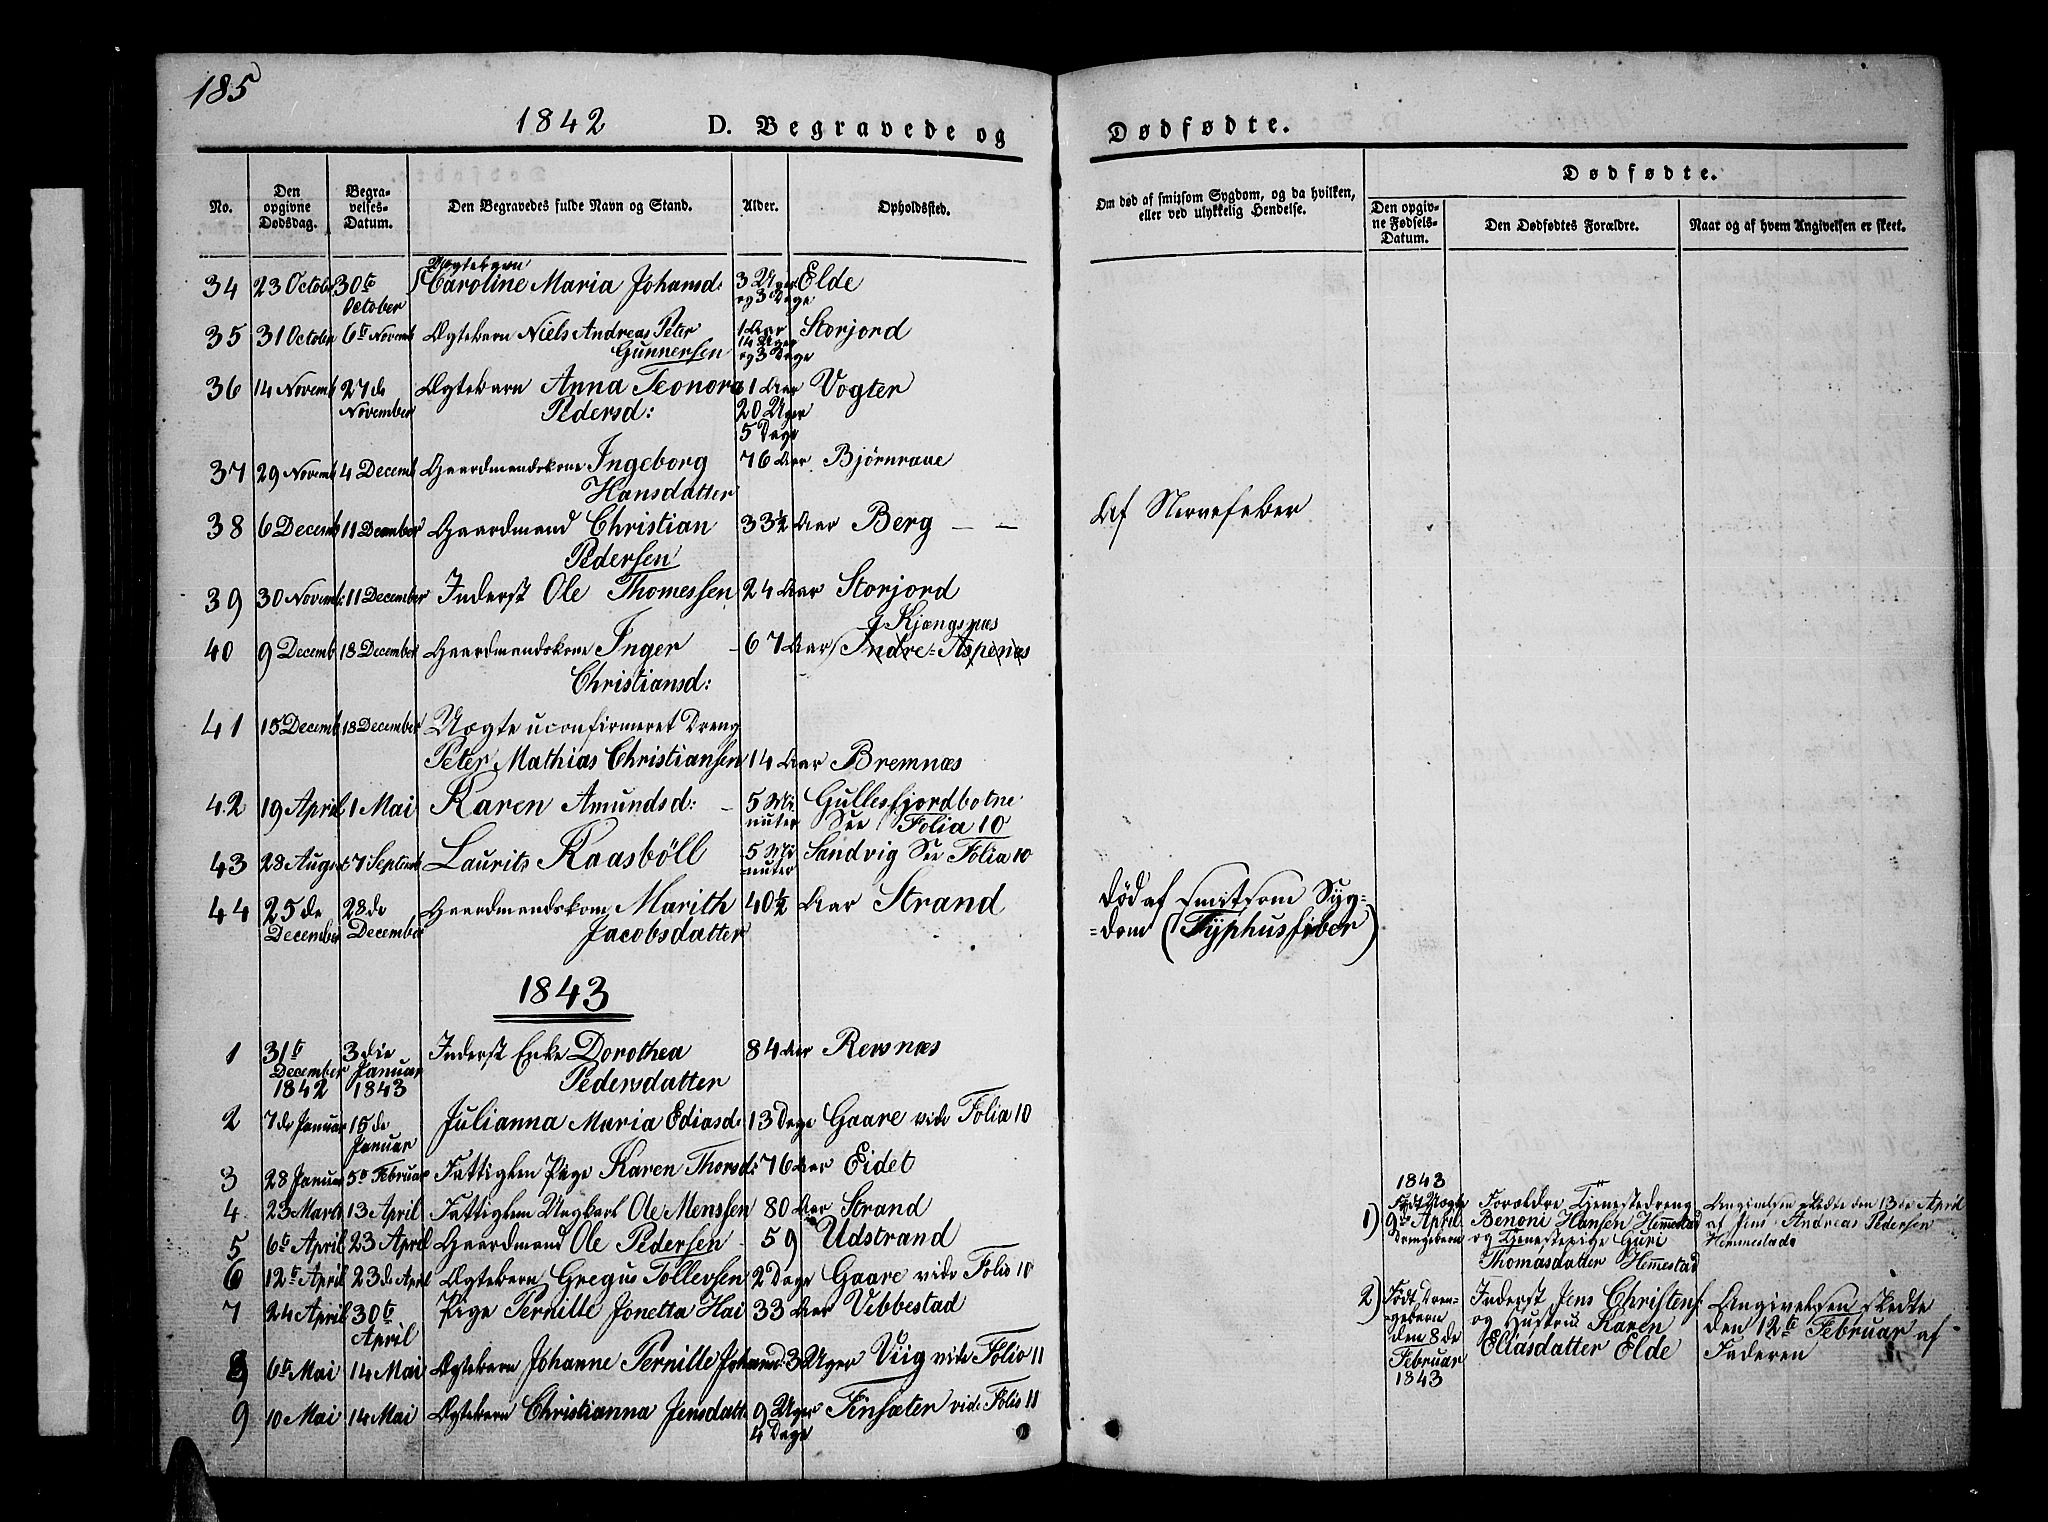 185
1842 D. Begravede og
No. Den opgivne Dødsdag. Begravelses-Datum. Den Begravedes fulde Navn og Stand. Alder. Opholdssted.
34 23 October 30te October Ægtebarn Caroline Maria Johansd: 3 Uger og 3 Dage Elde
35 31 Octobr 6te Novemb Ægtebarn Niels Andreas Peter Gunnersen 1 Aar 14 Uger og 3 Dage Storjord
36 14 Novemb 27de November Ægtebarn Anna Leonora Pedersd: 1 Aar 20 Uger 5 Dage Vogter
37 29 Novemb 4 Decemb Gaardmandskone Ingeborg Hansdatter 76 Aar Bjørnraae
38 6 Decemb 11 December Gaardmand Christian Pedersen 33½ Aar Berg – –
39 30 Novemb: 11 December Inderst Ole Thomessen 24 Aar Storjord
40 9 Decemb 18 December Gaardmandskone Inger Christiansd: 67 Aar Indre-Aspenæs Kjængsnæs
41 15 Decemb 18 December Uægte uconfirmeret Dreng
Peter Mathias Christiansen 14 Aar Bremnæs
42 19 April 1 Mai Karen Amundsd: – 5 Minuter Gullesfjordbotne See Folia 10
43 28 August 7 Septemb Laurits Kaasböll 5 Minuter Sandvig See Folia 10
44 25de December 28de December Gaardmandskone Marith Jacobsdatter 40½ Aar Strand
1843
1 31te December 1842 3die Januar 1843 Inderst Enke Dorothea Pedersdatter 84 Aar Revsnæs
2 7de Januar 15de Januar Julianna Maria Ediasd: 13 Dage Gaare vide Folia 10
3 28 Januar 5te Februar Fattiglem Pige Karen Thorsd: 76 Aar Eidet
4 23 Marts 13 April Fattiglem Ungkarl Ole Menssen 80 Aar Strand
5 6te April 23 April Gaardmand Ole Pedersen – 59 Udstrand
6 12te April 23de April Ægtebarn Gregus Tollevsen 2 Dage Gaare vide Folio 10
7 24 April 30te April Pige Pernille Jonetta Hai 33 Aar Vebbestad
8 6te Mai 14 Mai Ægtebarn Johanne Pernille Johansd: 3 Uger Viig vide Folio 11
9 10 Mai 14 Mai Ægtebarn Christianna Jensdatt: 9 Uger 4 Dage Finsæter vide Folio 11
Dødfødte.
Om død af smitsom Sygdom, og da hvilken, eller ved ulykkelig Hendelse.
Dødfødte.
Den opgivne Fødsels-Datum. Den Dødfødtes Forældre. Naar og af hvem Angivelsen er skeet.
Af Nervefeber
død af smitsom Syg=
=dom (Typhusfeber)
1) 1843 Født Uægte 9de April Drengebarn Forældre Tjenestedreng Benoni Hansen Hemmestad og Tjenestepige Guri Thomasdatter Hemmestad Angivelsen skedte den 13de April af Jens Andreas Pedersen Hemmestad
2) Født Drengebarn den 8de Februar 1843 Inderst Jens Christens: og Hustrue Karen Eliasdatter Elde Angivelsen skedte den 12te Februar af Faderen